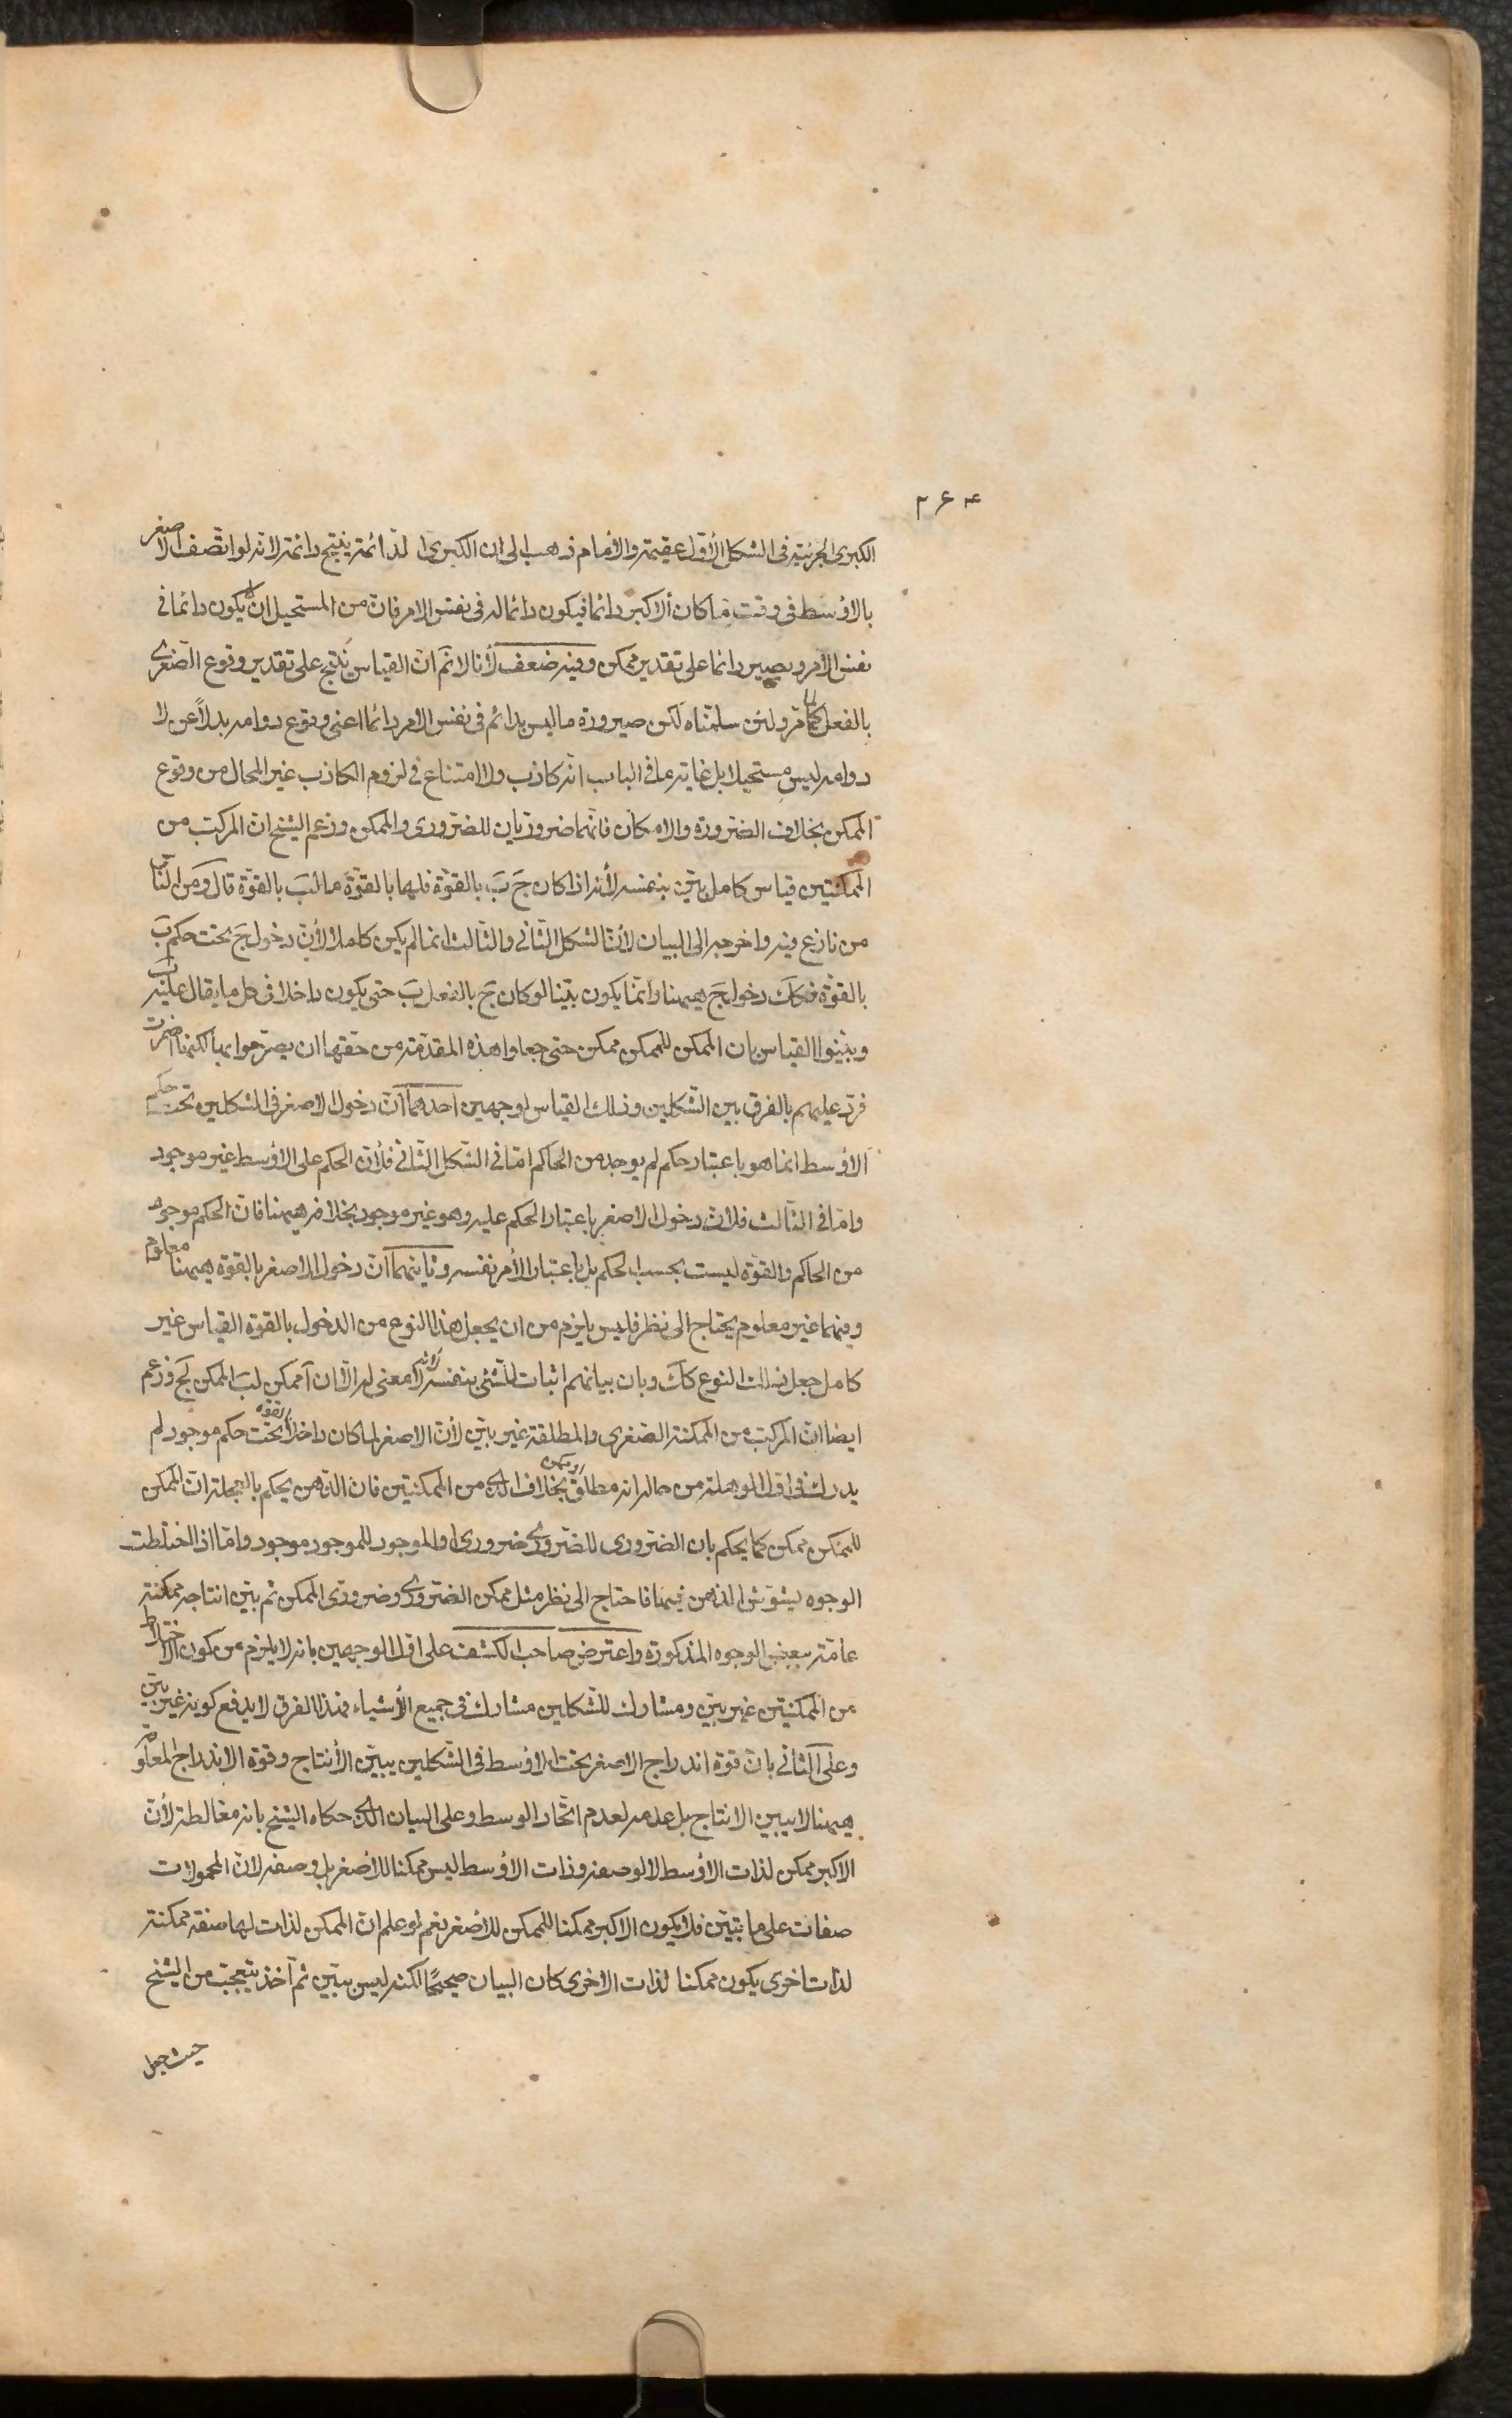 ۲۶۴
الكبرى الجزئية فى الشكل الأوّل عقيمة والأمام ذهب الى ان الكبرى الدّائمة ينتج دائمة لانّه لو اتّصف الاصغر
بالاوسط فى وقت ما كان الاكبر دائما فيكون دائما له فى نفس الامر فان من المستحيل ان لا يكون دائما فى
نفس الأمر ويصير دائما على تقدير ممكن وفيه ضعف لأنا لا نم انّ القياس ينتج على تقدير وقوع الصّغرى
بالفعل كما مرّ ولئن سلّمناه لكن صيرورة ما ليس بدائم فى نفس الامر دائما اعنى وقوع دوامه بدلاً عن لا
دوامه ليس مستحيلا بل غاية ما فى الباب انّه كاذب ولا امتناع فى لزوم الكاذب غير المحال من وقوع
الممكن بخلاف الضّرورة والامكان فانّهما ضروريان للضّرورى والممكن وزعم الشيخ انّ المركب من
الممكنتين قياس كامل بيّن بنفسه لأنه اذا كان جَ بَ بالقوّة فلها بالقوّة ما لبَ بالقوّة قال ومن النّاس
من نازع فيه واخرجه الى البيان لأنّ الشكل الثّانى والثّالث انما لم يكن كاملا لأن دخول جَ تحت حكم بَ
بالقوّة فكك دخول جَ ههنا وانّما يكون بيّنا لو كان جَ بالفعل بَ حتى يكون داخلا فى كل ما يقال عليه بَ
وبيّنوا القياس بان الممكن للممكن ممكن حتى جعلوا هذه المقدّمة من حقها ان يصرّحوا بها لكنها اضمرت
فردّ عليهم بالفرق بين الشّكلين وذلك القياس لوجهين احدهما انّ دخول الاصغر فى الشكلين تحت حكم
الاوسط انما هو باعتبار حكم لم يوجد من الحاكم امّا فى الشّكل الثّانى فلأنّ الحكم على الاوسط غير موجود
وامّا فى الثّالث فلانّ دخول الاصغر باعتبار الحكم عليه وهو غير موجود بخلافه ههنا فان الحكم موجود
من الحاكم والقوّة ليست بحسب الحكم بل باعتبار الأمر نفسه وثانيهما انّ دخول الاصغر بالقوّة ههنا معلوم
وفيهما غير معلوم يحتاج الى نظر فليس يلزم من ان يجعل هذا النوع من الدخول بالقوّة القياس غير
كامل جعل ذلك النوع كك وبان بيانهم اثبات للشّئ بنفسه لانه لا معنى له الّا ان ممكن لبَ الممكن لجَ وزعم
ايضا انّ المركب من الممكنة الصّغرى والمطلقة غير بيّن لأن الاصغر لما كان داخلا بالقوّة تحت حكم موجود لم
يدرك فى اوّل الوهلة من حاله انه مطلق او ممكن بخلاف المركب من الممكنتين فان الذهن يحكم بالعجلة انّ الممكن
للممكن ممكن كما يحكم بان الضّرورى للضّرورى ضرورى والموجود للموجود موجود وامّا اذا اختلطت
الوجوه ليشوّش الذهن فيهما فاحتاج الى نظر مثل ممكن الضّرورى وضرورى الممكن ثم بيّن انتاجه ممكنة
عامّة ببعض الوجوه المذكورة واعترض صاحب الكشف على اوّل الوجهين بانه لا يلزم من كون الاختلاط
من الممكنتين غير بيّن ومشارك للشّكلين مشارك فى جميع الأشياء فهذا الفرق لا يدفع كونه غير بيّن
وعلى الثّانى بانّ قوّة اندراج الاصغر تحت الاوسط فى الشّكلين يبيّن الأنتاج وقوّة الاندراج المعلوم
ههنا لا يبين الانتاج بل عدمه لعدم اتّحاد الوسط وعلى البيان الذى حكاه الشيخ بانه مغالطة لأنّ
الاكبر ممكن لذات الاوسط لا لوصفه وذات الاوسط ليس ممكنا للاصغر بل وصفه لانّ المحمولات
صفات على ما تبيّن فلا يكون الاكبر ممكنا للممكن للاصغر نعم لو علم انّ الممكن لذات لها صفة ممكنة
لذات اخرى يكون ممكنا لذات الاخرى كان البيان صحيحًا لكنه ليس ببيّن ثم اخذ يتعجّب من الشّيخ
حيث جعل